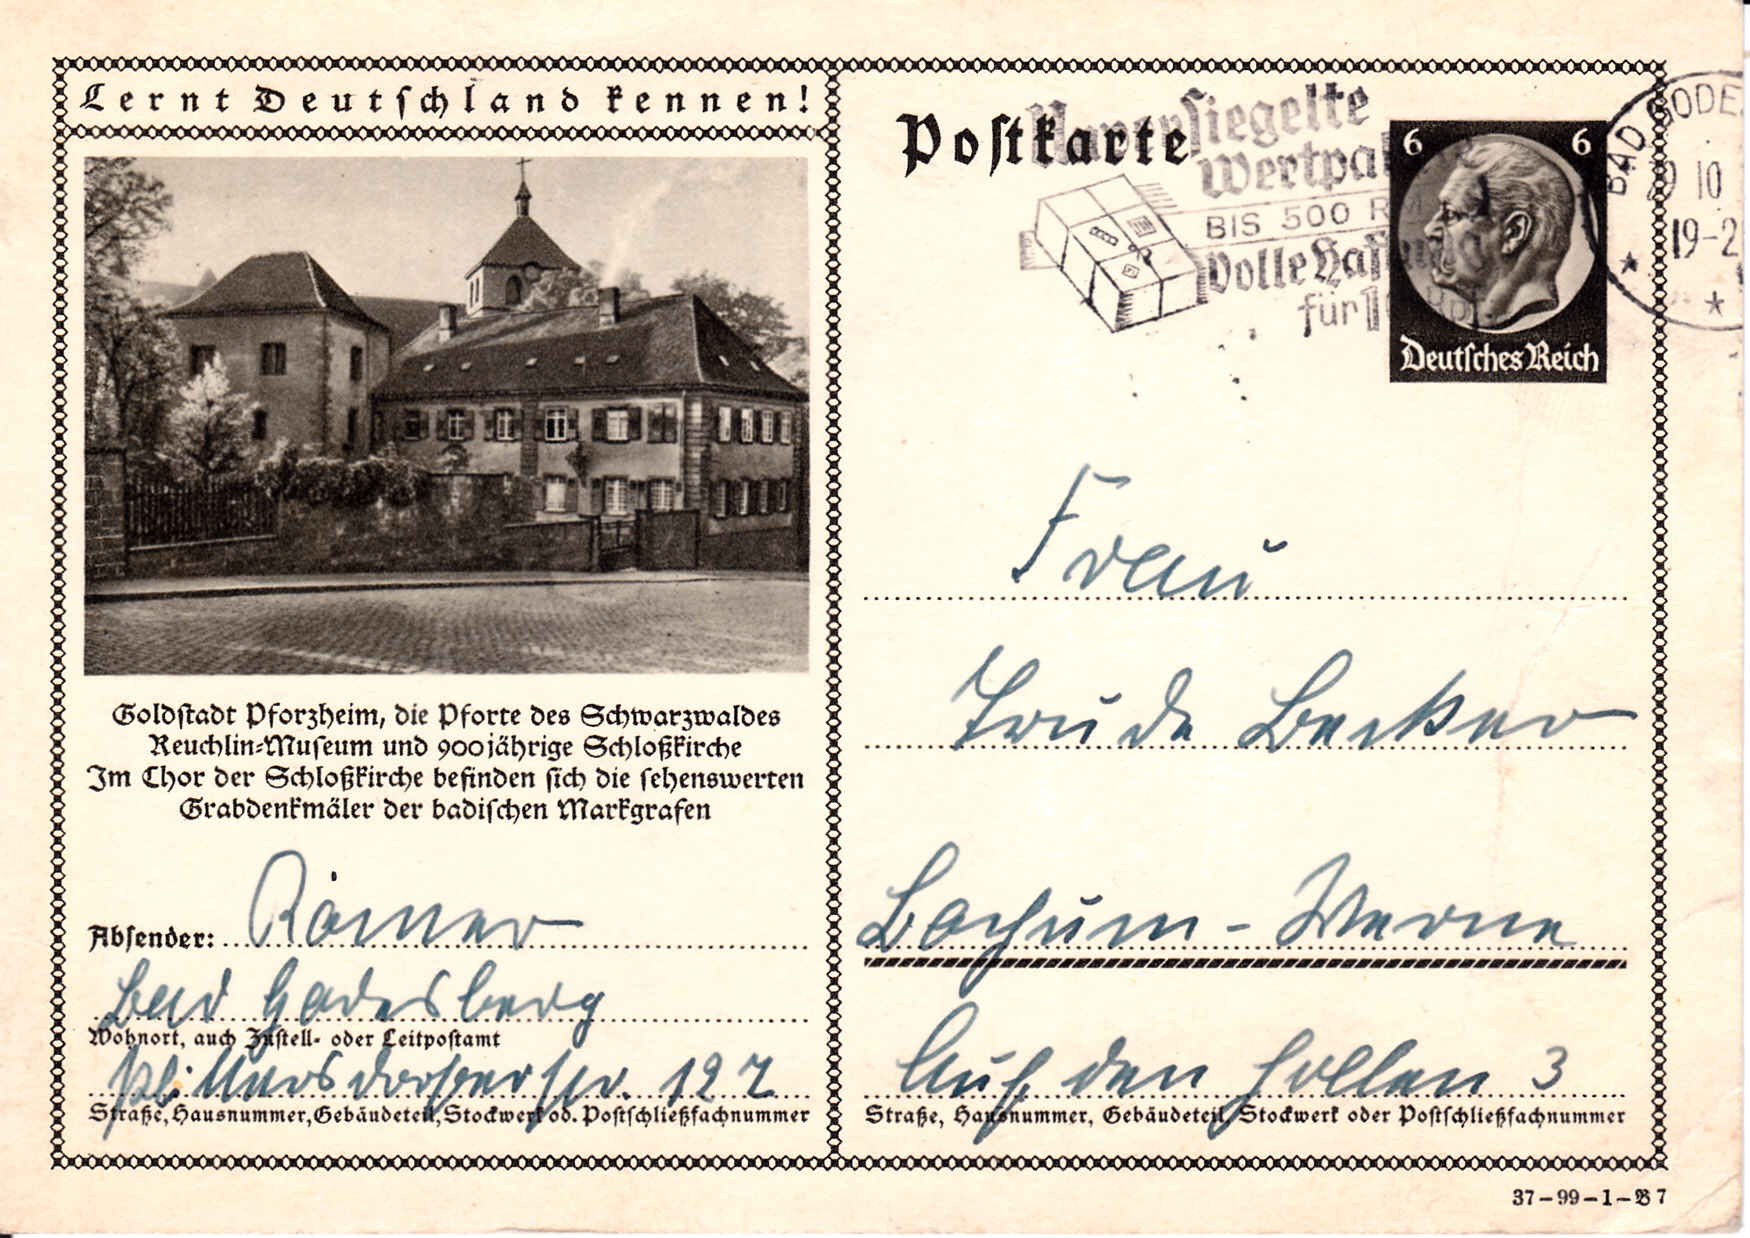 Lernt Deutschland kennen!
Goldstadt Pforzheim, die Pforte des Schwarzwaldes
Reuchlin-Museum und 900jährige Schloßkirche
Im Chor der Schloßkirche befinden sich die sehenswerten
Grabdenkmäler der badischen Markgrafen
Absender: Römer
Bad Godesberg
Wohnort, auch Zustell- oder Leitpostamt
Plittersdorferstr. 127
Straße, Hausnummer, Gebäudeteil, Stockwerk od. Postschließfachnummer
Postkarte
siegelte
Wertpak
BIS 500 R
Volle Haf
für 1
6 6
Deutsches Reich
BAD GODE
10
19-2
Frau
Trude Becker
Bochum-Werne
Auf den Hollen 3
Straße, Hausnummer, Gebäudeteil, Stockwerk oder Postschließfachnummer
37-99-1-B 7